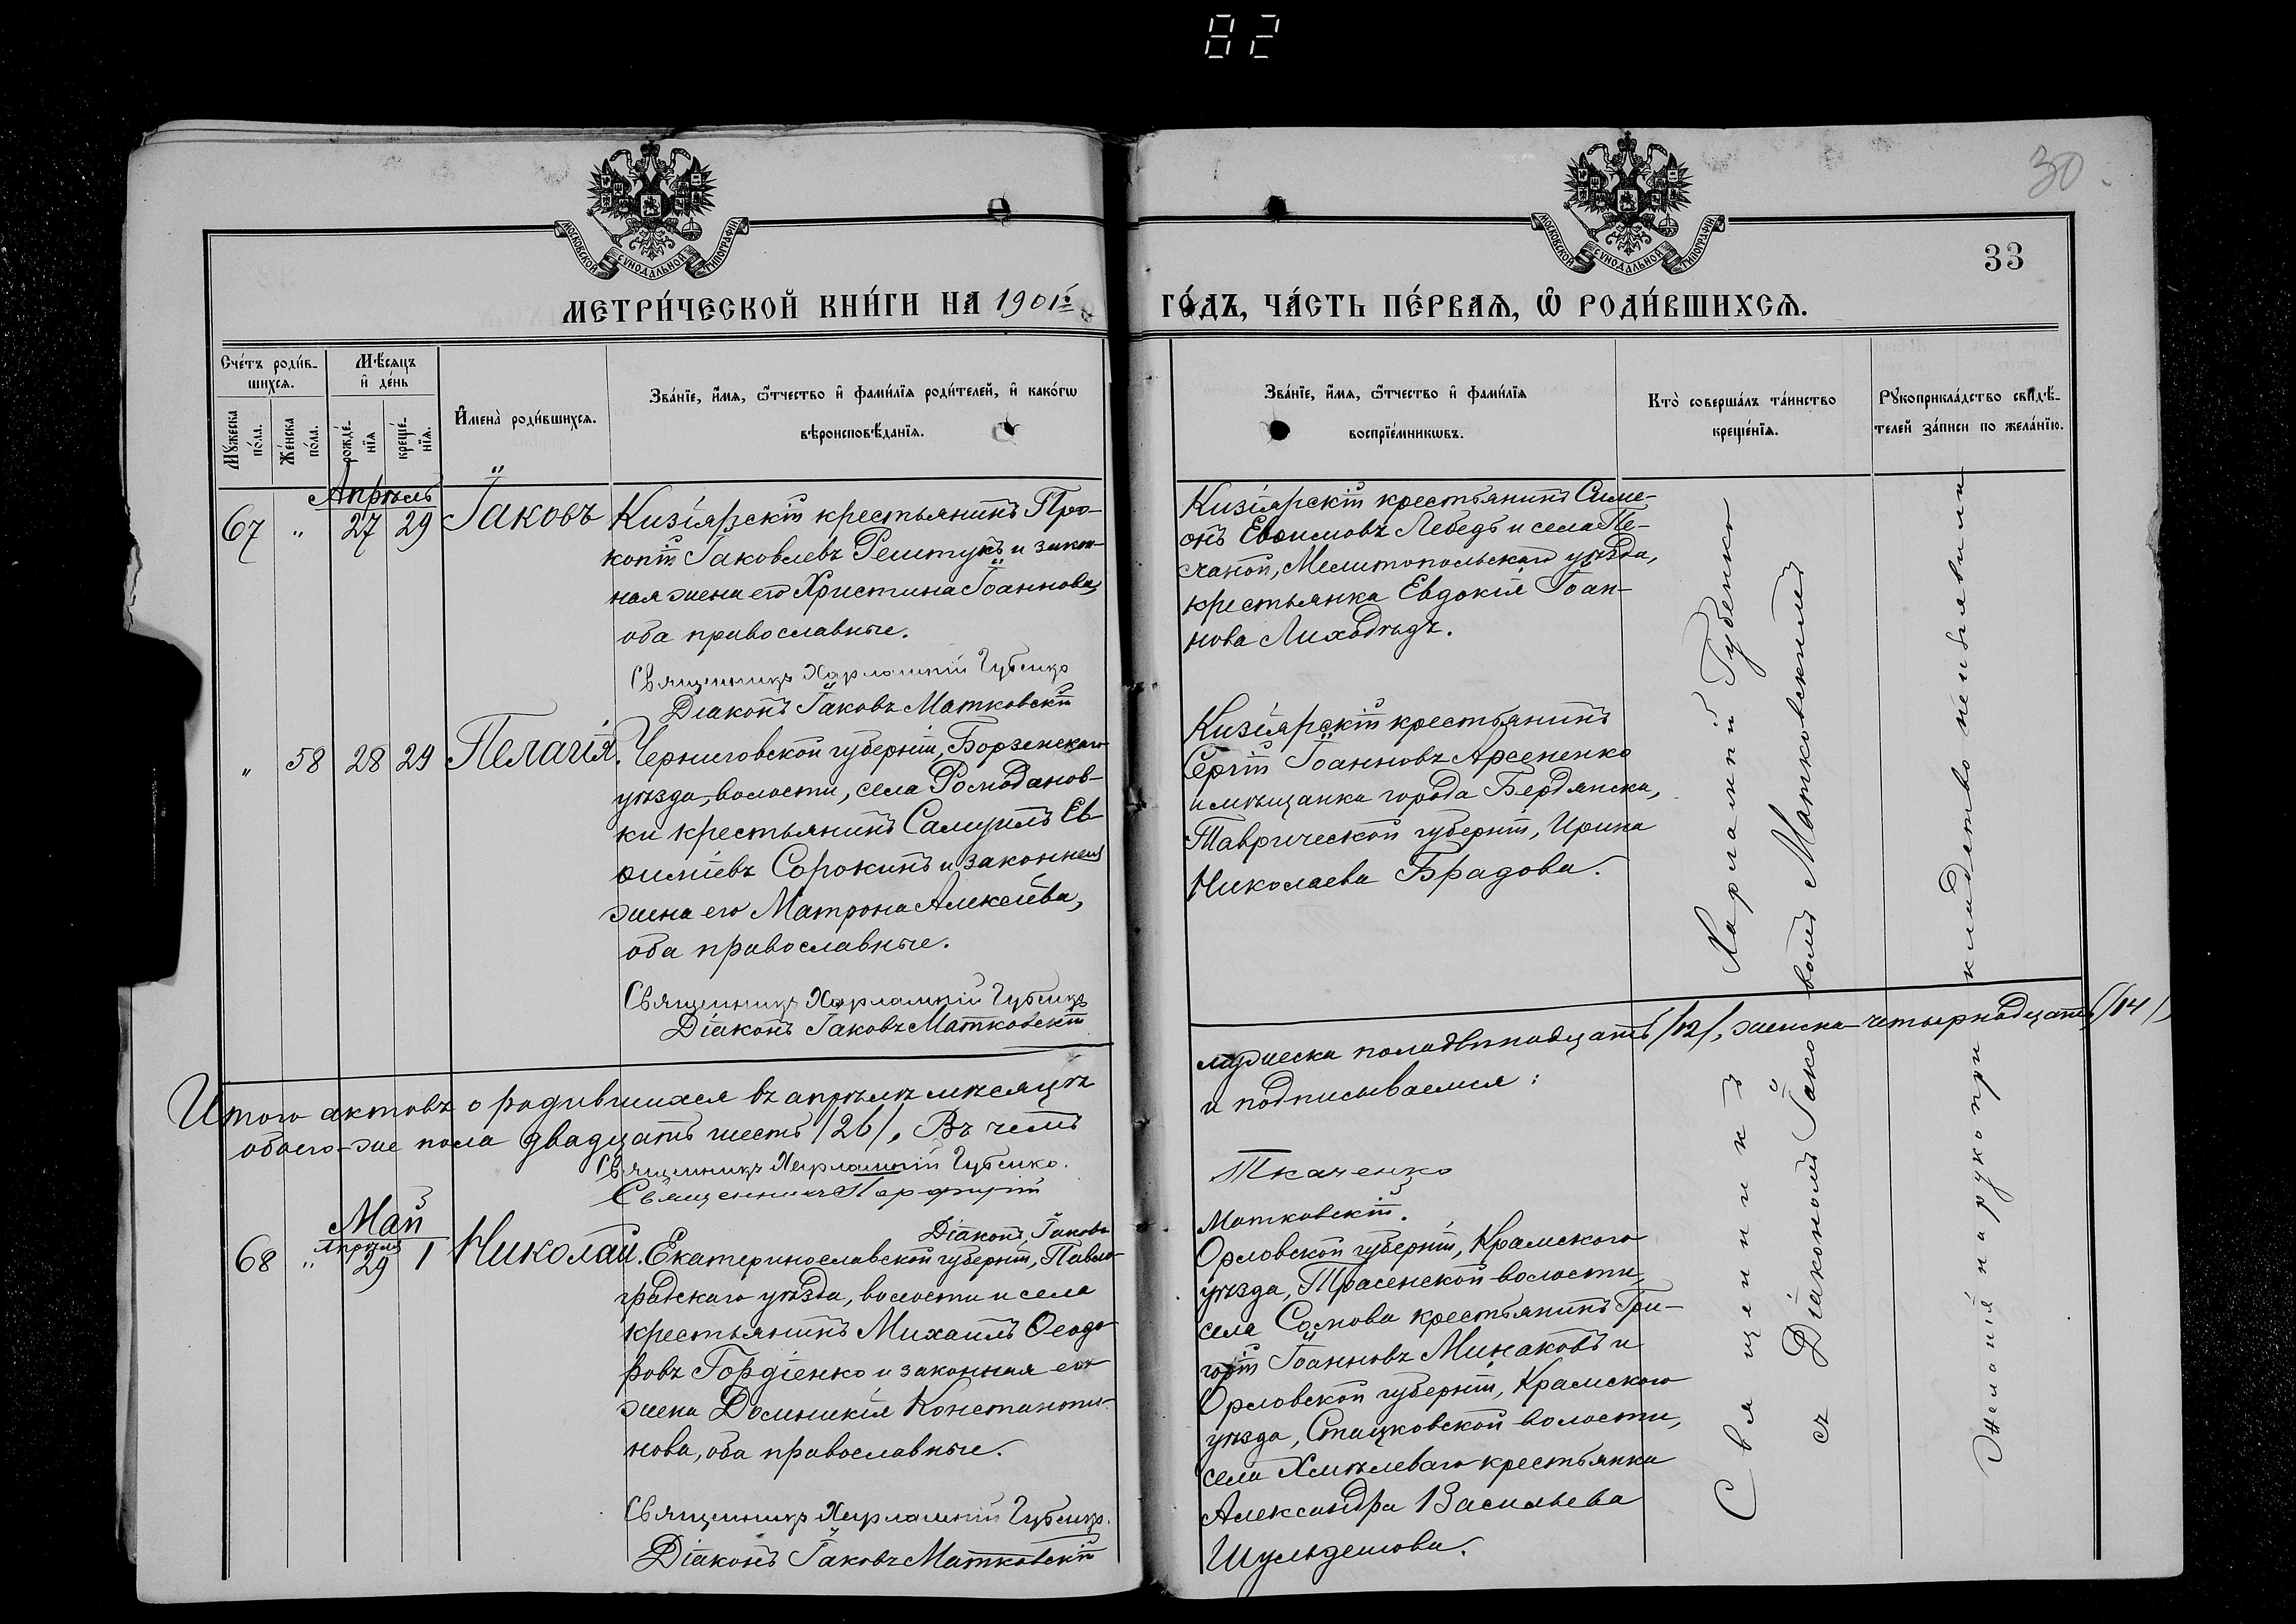 82
30
33
МОСКОВСКОЙ СѴНОДАЛЬНОЙ ТИПОГРАФІИ
МОСКОВСКОЙ СѴНОДАЛЬНОЙ ТИПОГРАФІИ
МЕТРИ́ЧЕСКОЙ КНИ́ГИ НА 1901й
ГО́ДЪ, ЧА́СТЬ ПЕ́РВАѦ, Ѡ҆ РОДИ́ВШИХСѦ.
Сче́тъ роди́в-
шихсѧ.
Мѣ́сѧцъ
и҆ де́нь
Мꙋ́жеска по́ла.
Же́нска по́ла.
рожде́-
нїѧ
креще́-
нїѧ.
И҆мена̀ роди́вшихсѧ.
Зва́нїе, и҆́мѧ, ѻ҆́тчество и҆ фами́лїѧ роди́телей, и҆ како́гѡ
вѣроисповѣ́данїѧ.
Зва́нїе, и҆́мѧ, ѻ҆́тчество и҆ фами́лїѧ
воспрїе́мникѡвъ.
Кто̀ соверша́лъ та́инство
креще́нїѧ.
Рꙋкоприкла́дство свидѣ́-
телей за́писи по жела́нїю.
Апрѣль
67 " 27 29 Іаковъ
Кизіярскій крестьянинъ Про-
копій Іаковлевъ Решетукъ и закон-
ная жена его Христина Іоаннова,
оба православные.
Священникъ Харлампій Губенко
Діаконъ Іаковъ Матковскій
Кизіярскій крестьянинъ Симе-
онъ Евѳимовъ Лебедь и села Пе-
счаной, Мелитопольскаго уѣзда,
крестьянка Евдокія Іоан-
нова Лиходѣдъ.
" 58 28 29 Пелагія.
Черниговской губерніи, Борзенскаго
уѣзда, волости, села Ромоданов-
ки крестьянинъ Самуилъ Ев-
ѳиміевъ Сорокинъ и законная
жена его Матрона Алексѣева,
оба православные.
Священникъ Харлампій Губенко
Діаконъ Іаковъ Матковскій
Кизіярскій крестьянинъ
Сергій Іоанновъ Арсененко
и мѣщанка города Бердянска,
Таврической губерніи, Ирина
Николаева Брадова.
Итого актовъ о родившихся въ апрѣлѣ мѣсяцѣ
обоего-же пола двадцать шесть /26/. Въ чемъ
мужеска пола двѣнадцать /12/, женска-четырнадцать /14/
и подписываемся:
Священникъ Харлампій Губенко.
Священникъ Порфирій
Ткаченко
Діаконъ Іаковъ
Матковскій.
Май
Апрѣля
68 " 29 1 Николай.
Екатеринославской губерніи, Павло-
градскаго уѣзда, волости и села
крестьянинъ Михаилъ Ѳеодо-
ровъ Гордіенко и законная его
жена Домникія Константи-
нова, оба православные.
Священникъ Харлампій Губенко.
Діаконъ Іаковъ Матковскій
Орловской губерніи, Крамского
уѣзда, волости,
села крестьянинъ Гри-
горій Іоанновъ Минаковъ и
Орловской губерніи, Крамского
уѣзда, волости,
села Хмѣлеваго крестьянка
Александра Васильева
Шульдешова.
Священникъ Харлампій Губенко
съ Діакономъ Іаковомъ Матковскимъ
Желанія на рукоприкладство не изъявили